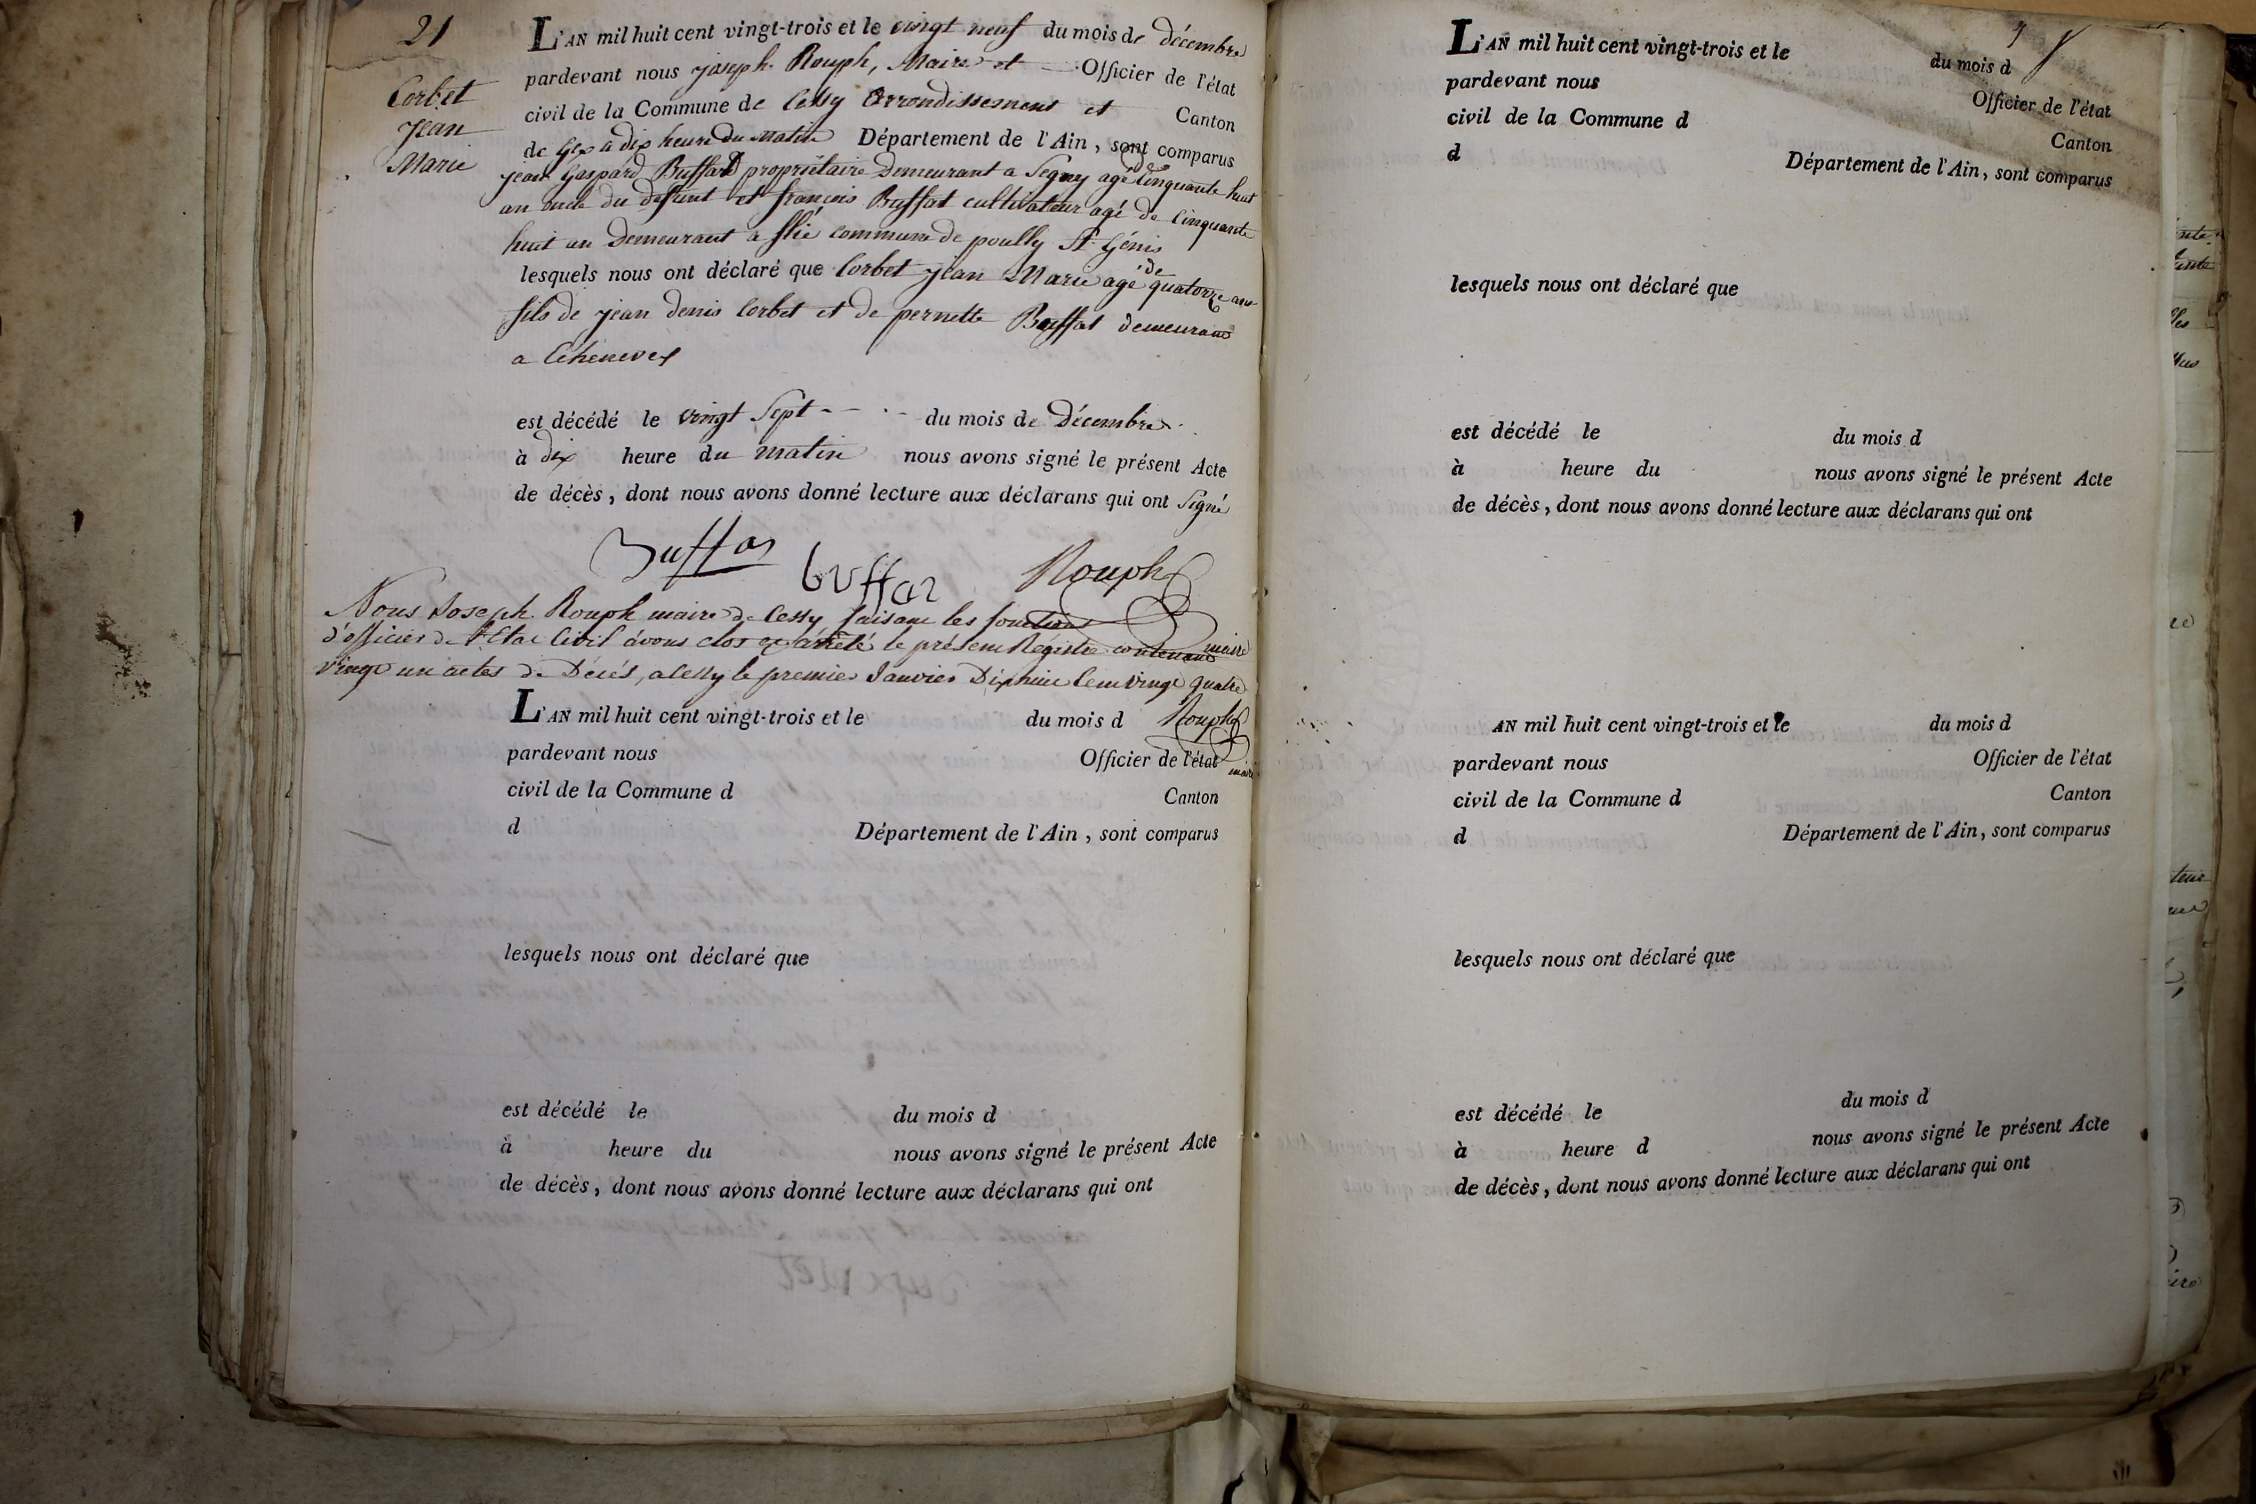 21
Corbet
Jean
Marie
L'AN mil huit cent vingt-trois et le vingt neuf du mois de décembre
pardevant nous joseph Rouph, Maire et Officier de l'état
civil de la Commune de Cessy Arrondissement et Canton
de Gex a dix heure du Matin Département de l'Ain, sont comparus
jean Gaspard Buffard propriétaire Demeurant a Segny agé de Cinquante huit
an oncle du défunt et françois Buffat cultivateur agé de Cinquante
huit an Demeurant a flié commune de poully St. Génis
lesquels nous ont déclaré que Corbet jean Marie agé de quatorze ans
fils de jean denis Corbet et de pernette Buffat demeurans
a Chenevex
est décédé le vingt Sept du mois de Décembre
à dix heure du matin nous avons signé le présent Acte
de décès, dont nous avons donné lecture aux déclarans qui ont Signé
Buffat buffat Rouph
maire
Nous Joseph Rouph maire de Cessy, faisant les fonctions
d'officier de l'Etat Civil avons clos et arrété le présent Régistre contenant
vingt un actes de Décés, a Cessy le premier Janvier Dix huit Cent vingt quatre
Rouph
maire
L'AN mil huit cent vingt-trois et le du mois d
pardevant nous Officier de l'état
civil de la Commune d Canton
d Département de l'Ain, sont comparus
lesquels nous ont déclaré que
est décédé le du mois d
à heure du nous avons signé le présent Acte
de décès, dont nous avons donné lecture aux déclarans qui ont
L'AN mil huit cent vingt-trois et le du mois d
pardevant nous Officier de l'état
civil de la Commune d Canton
d Département de l'Ain, sont comparus
lesquels nous ont déclaré que
est décédé le du mois d
à heure du nous avons signé le présent Acte
de décès, dont nous avons donné lecture aux déclarans qui ont
AN mil huit cent vingt-trois et le du mois d
pardevant nous Officier de l'état
civil de la Commune d Canton
d Département de l'Ain, sont comparus
lesquels nous ont déclaré que
est décédé le du mois d
à heure d nous avons signé le présent Acte
de décès, dont nous avons donné lecture aux déclarans qui ont